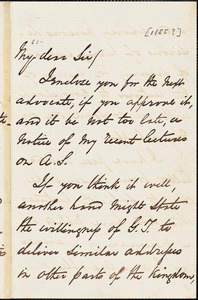 [1855?]
My dear Sir/
I enclose you for the next
advocate, if you approve it,
and it be not too late, a
notice of my recent lectures
on A.S.
If you think it well,
another hand might state
the willingness of G.T. to
deliver similar addresses
in other parts of the Kingdom,